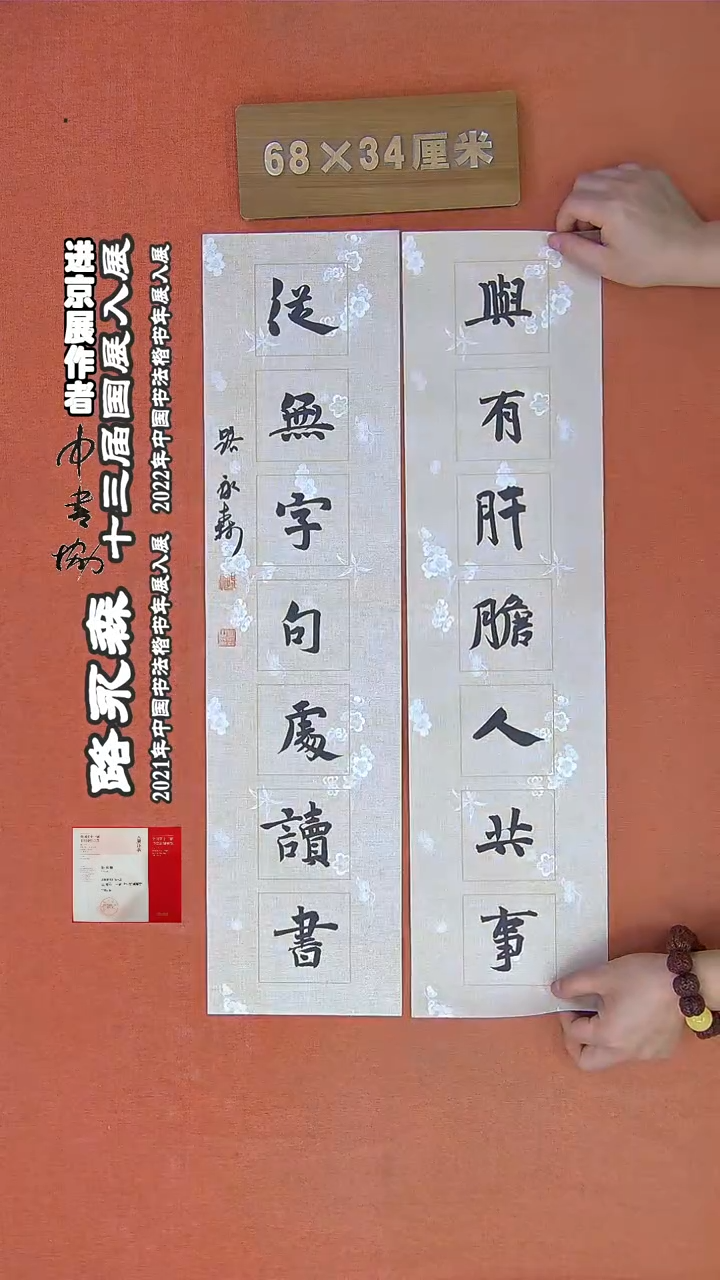 68×34厘米
與有肝膽人共事
從無字句處讀書
路永森
进京展作者
中书协
十三届国展入展
路永森
2021年中国书法楷书年展入展
2022年中国书法楷书年展入展